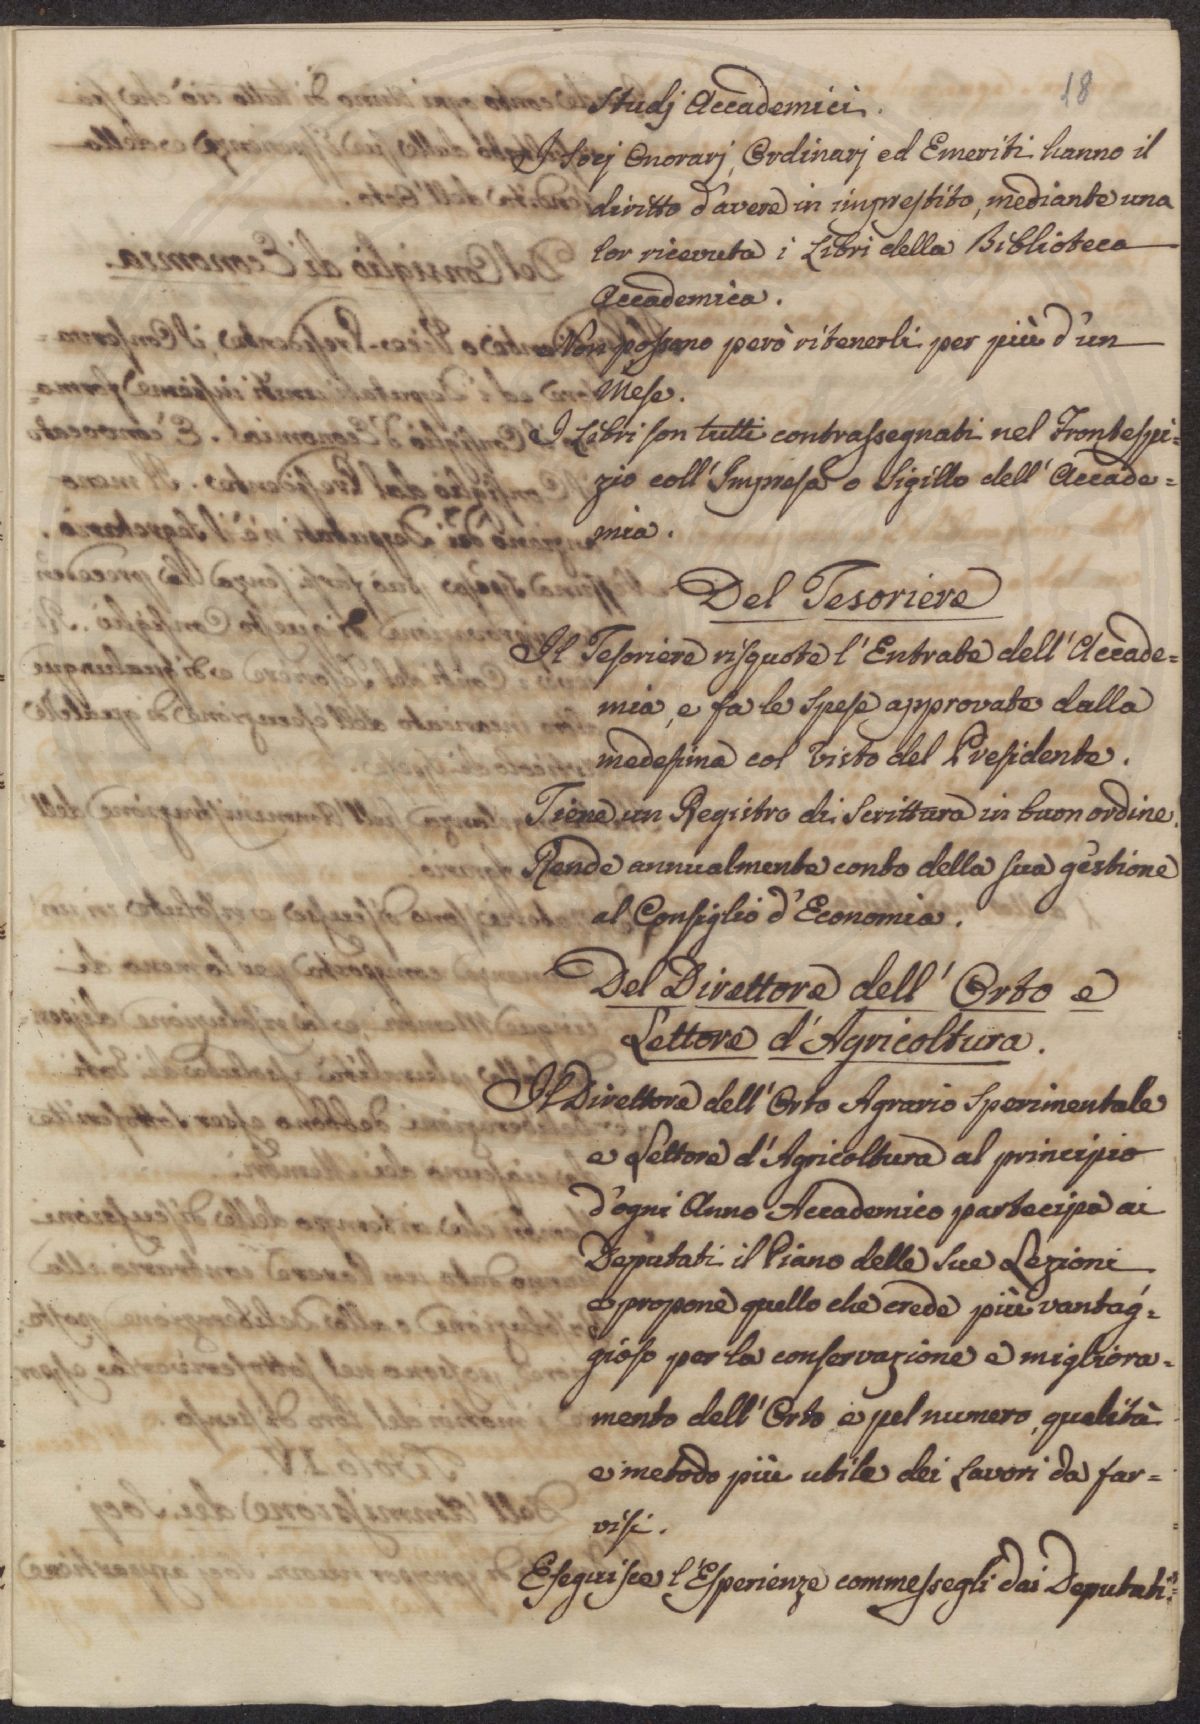 18
Studj Accademici.
I Socj Onorarj, Ordinarj ed Emeriti hanno il
diritto d'avere in imprestito, mediante una
lor ricevuta i Libri della Biblioteca
Accademica.
Non possono però ritenerli per più d'un
Mese.
I Libri son tutti contrassegnati nel Frontespi=
zio coll'Impresa o Sigillo dell'Accade=
mia.
Del Tesoriere
Il Tesoriere risquote l'Entrate dell'Accade=
mia, e fa le Spese approvate dalla
medesima col Visto del Presidente.
Tiene un Registro di Scrittura in buon ordine.
Rende annualmente conto della sua gestione
al Consiglio d'Economia.
Del Direttore dell'Orto e
Lettore d'Agricoltura.
Il Direttore dell'Orto Agrario Sperimentale
e Lettore d'Agricoltura al principio
d'ogni Anno Accademico partecipa ai
Deputati il Piano delle Sue Lezioni
e propone quello che crede più vantag=
gioso per la conservazione e migliora=
mento dell'Orto e pel numero, qualità
e metodo più utile dei Lavori da far=
visi.
Eseguisce l'Esperienze commessegli dai Deputati.